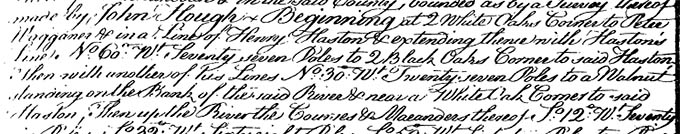 in the said County, bounded as by a Survey thereof
made by John Slough & Beginning at 2 White Oaks Corner to Peter
Waggoner & in a Line of Henry Haston & extending thence with Haston's
line No. 60°. Wt. Seventy seven Poles to 2 Black Oaks Corner to said Haston
Then with another of his Lines No. 30°. Wt. Twenty seven Poles to a Walnut
standing on the Bank of the said River & near a White Oak Corner to said
Haston, Then up the River the Courses & Maeanders thereof So. 12°. Wt. Seventy